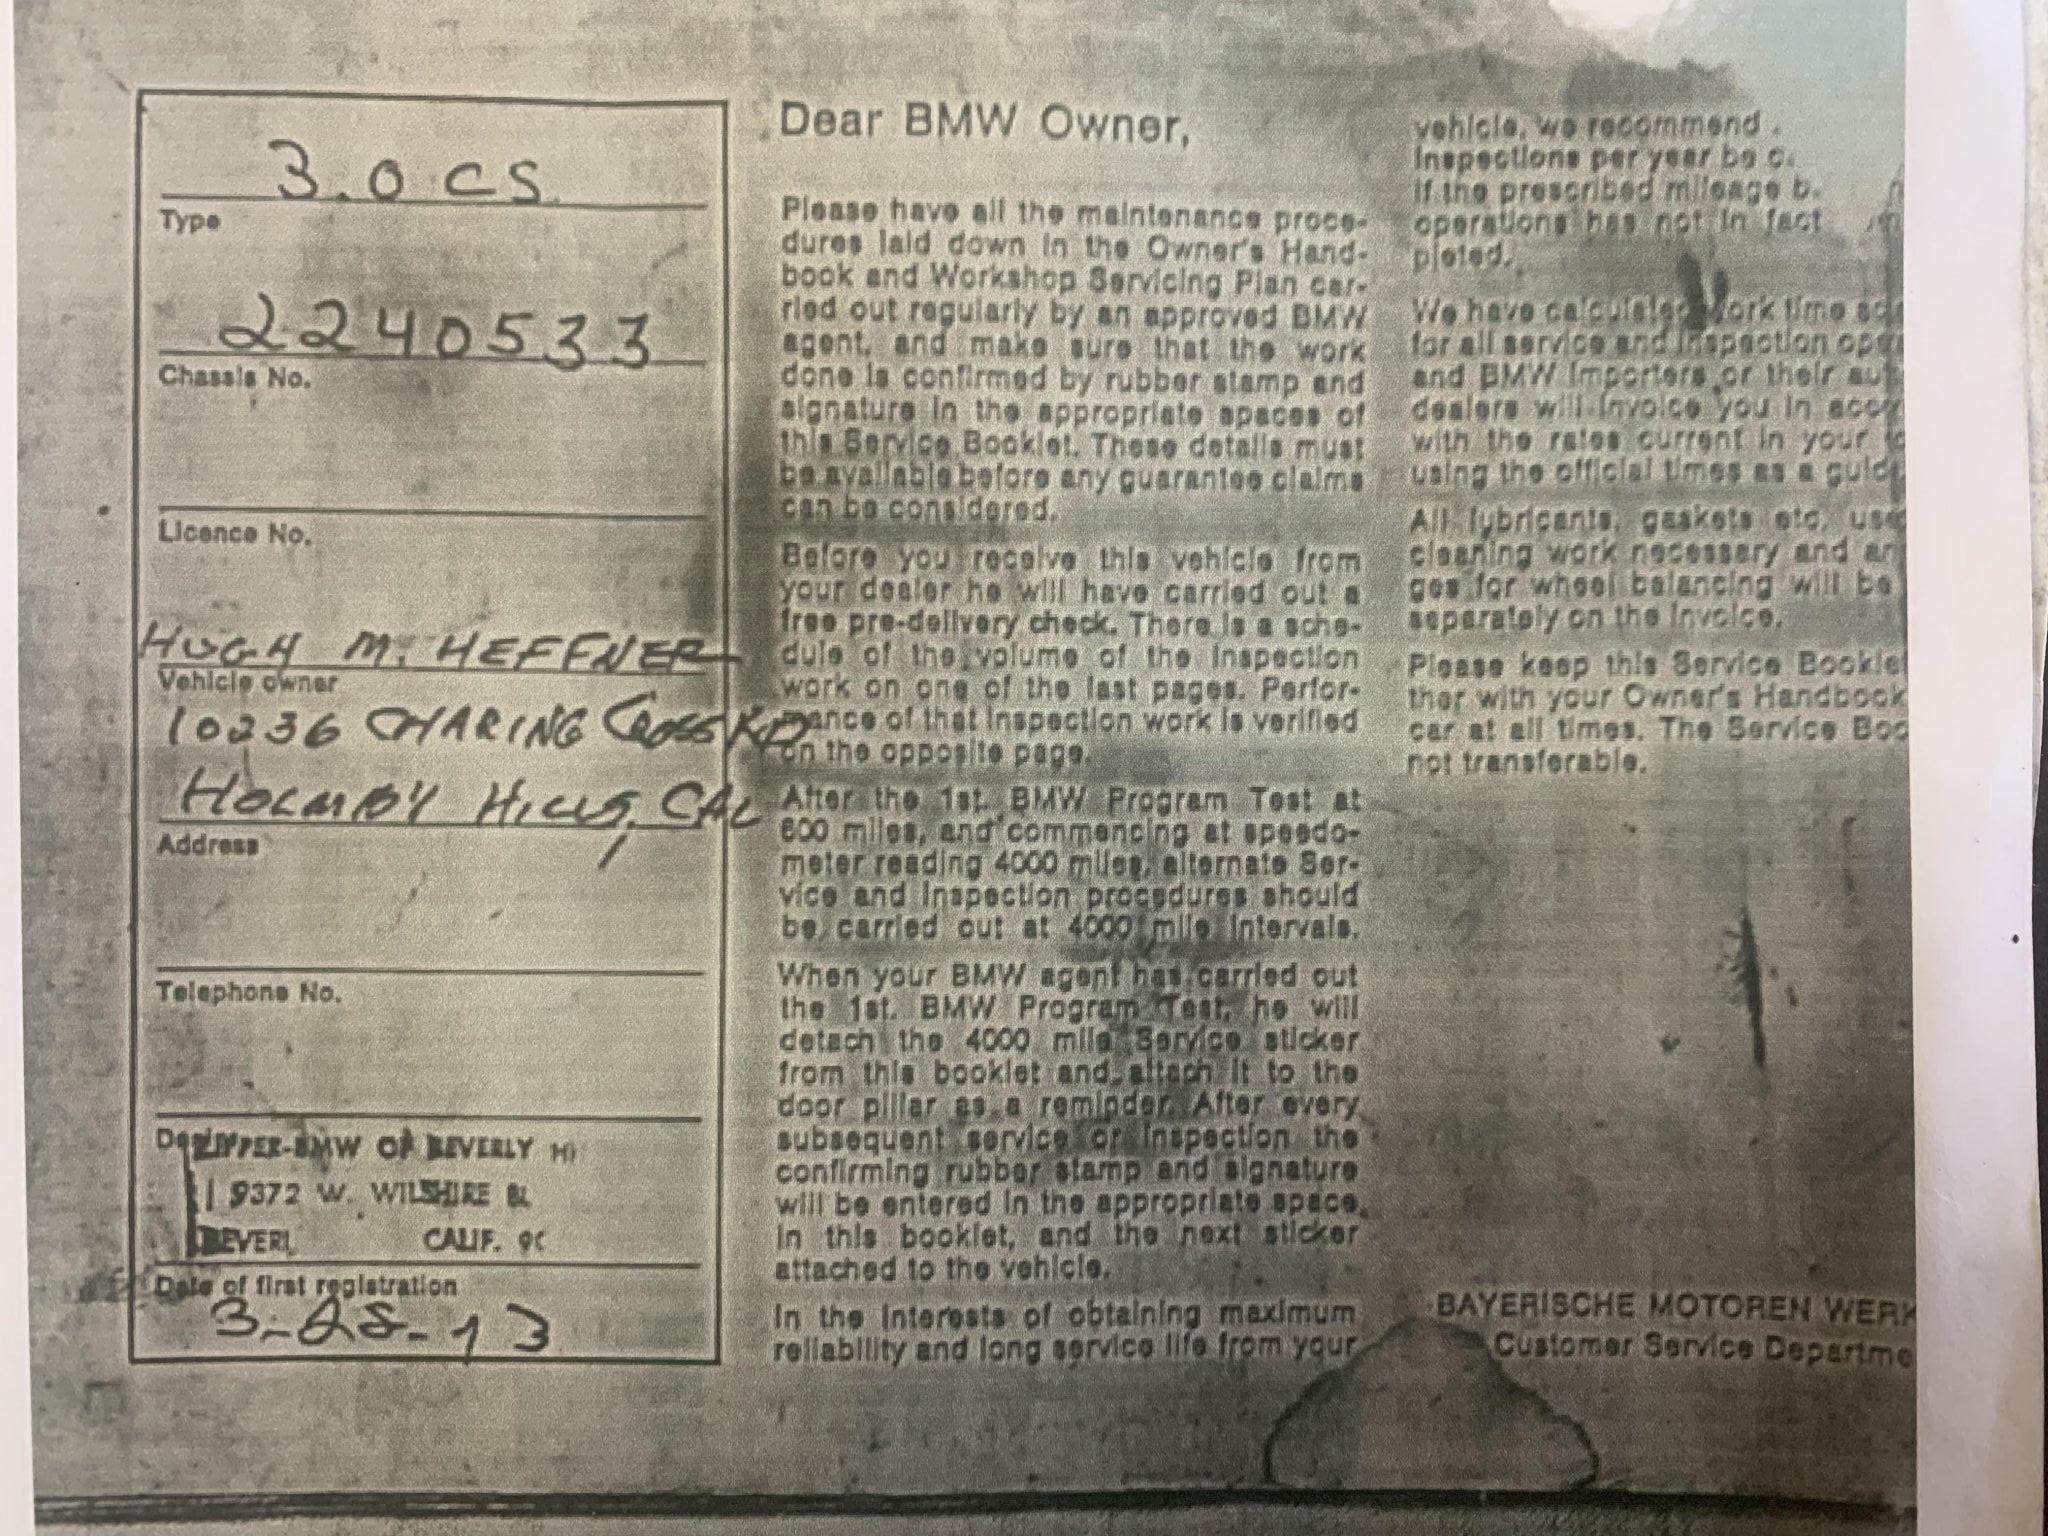 3.0 CS
Type
2240533
Chassis No.
Licence No.
HUGH M. HEFFNER
Vehicle owner
10236 CHARING CROSS RD
HOLMBY HILLS, CAL
Address
Telephone No.
-BMW OF BEVERLY HI
9372 W. WILSHIRE BL
BEVERL CALIF. 90
Date of first registration
3-28-73
Dear BMW Owner,
Please have all the maintenance proce-
dures laid down in the Owner's Hand-
book and Workshop Servicing Plan car-
ried out regularly by an approved BMW
agent, and make sure that the work
done is confirmed by rubber stamp and
signature in the appropriate spaces of
this Service Booklet. These details must
be available before any guarantee claims
can be considered.
Before you receive this vehicle from
your dealer he will have carried out a
free pre-delivery check. There is a sche-
dule of the volume of the inspection
work on one of the last pages. Perfor-
mance of that inspection work is verified
on the opposite page.
After the 1st. BMW Program Test at
600 miles, and commencing at speedo-
meter reading 4000 miles, alternate Ser-
vice and Inspection procedures should
be carried out at 4000 mile intervals.
When your BMW agent has carried out
the 1st. BMW Program Test, he will
detach the 4000 mile Service sticker
from this booklet and attach it to the
door pillar as a reminder. After every
subsequent service or inspection the
confirming rubber stamp and signature
will be entered in the appropriate space
in this booklet, and the next sticker
attached to the vehicle.
In the interests of obtaining maximum
reliability and long service life from your
vehicle, we recommend
Inspections per year be c
if the prescribed mileage b
operations has not in fact
pleted.
We have calculated work time
for all service and inspection ope
and BMW Importers or their au
dealers will invoice you in acco
with the rates current in your
using the official times as a guid
All lubricants, gaskets etc. use
cleaning work necessary and
ges for wheel balancing will be
separately on the invoice.
Please keep this Service Booklet
ther with your Owner's Handbook
car at all times. The Service Boo
not transferable.
BAYERISCHE MOTOREN WERK
Customer Service Departme